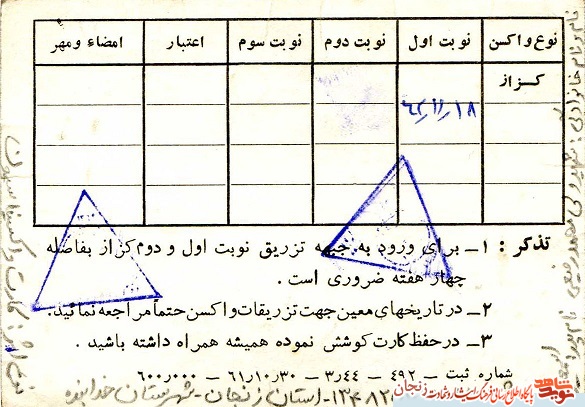 نوع واکسن نوبت اول نوبت دوم نوبت سوم اعتبار امضاء و مهر
کزاز
۶۲/۱۱/۱۸
تذکر : ۱ــ برای ورود به جبهه تزریق نوبت اول و دوم کزاز بفاصله
چهار هفته ضروری است .
۲ــ در تاریخهای معین جهت تزریقات واکسن حتماً مراجعه نمائید.
۳ــ در حفظ کارت کوشش نموده همیشه همراه داشته باشید .
شماره ثبت ــ ۴۹۲ ــ ۳٫۴۴ ــ ۶۱٫۱۰٫۳۰ ــ ۶۰۰٫۰۰۰
استان زنجان - شهرستان خدابنده
نام و نام خانوادگی :
کارت واکسیناسیون
نوید شاهد
پایگاه اطلاع رسانی فرهنگ ایثار و شهادت زنجان